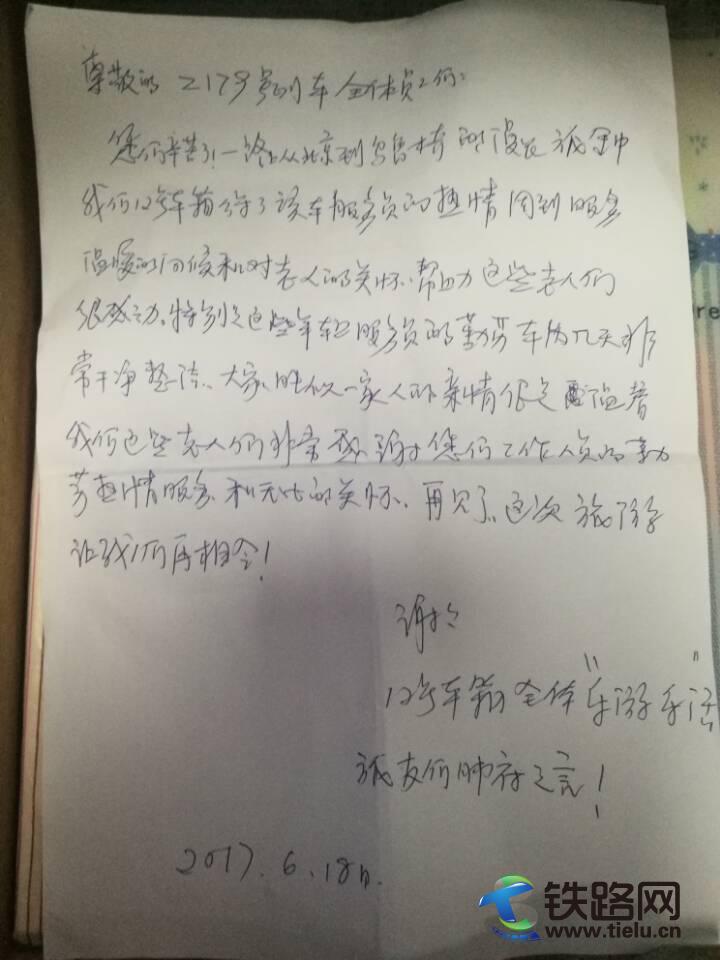 尊敬的Z179号列车全体员工们:
您们辛苦了!一路上从北京到乌鲁木齐的漫长旅途中
我们12号车箱得了该车服务员的热情周到服务
温暖的问候和对老人的关怀、帮助力这些老人们
很感动.特别是这些年轻服务员的勤劳车内几天非
常干净整洁、大家胜似一家人的亲情很是温馨
我们这些老人们非常感谢您们工作人员的勤
劳热情服务和无比的关怀.再见了这次旅游
让我们再相会!
谢谢
12号车箱全体"乐游乐活"
旅友们肺府之言!
2017.6.18日.
re
铁路网
www.tielu.cn